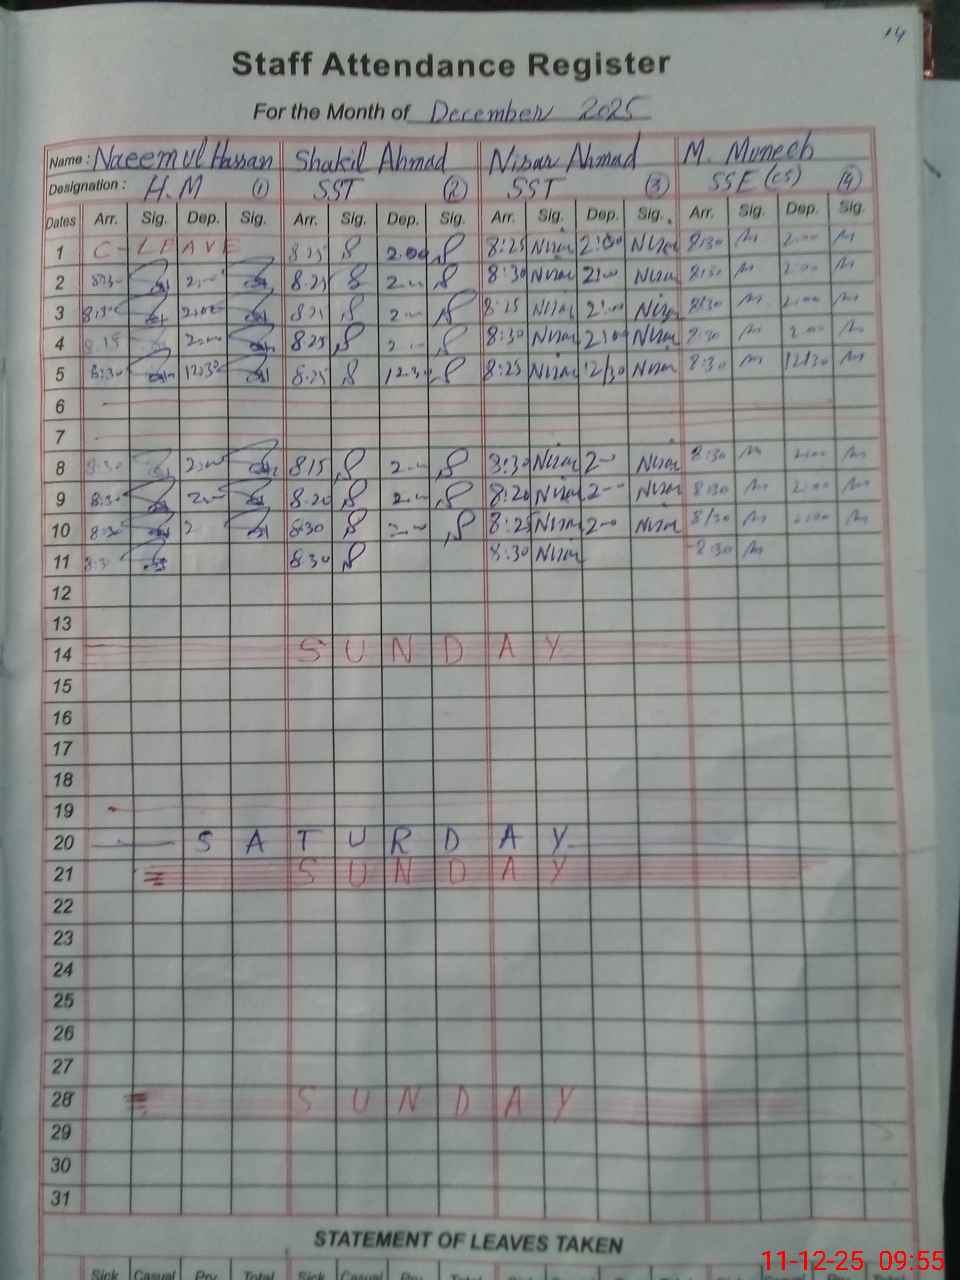 14
Staff Attendance Register
For the Month of December 2025
Name : Naeem ul Hassan Shakil Ahmad Nisar Ahmad M. Muneeb
Designation : H.M (1) SST (2) SST (3) SSE (CS) (4)
Dates Arr. Sig. Dep. Sig. Arr. Sig. Dep. Sig. Arr. Sig. Dep. Sig. Arr. Sig. Dep. Sig.
1 C-LEAVE 8.25 2.00 8:25 Nisar 2:00 Nisar 8:30 2:00
2 8:30 2:00 8.25 2:00 8:30 Nisar 2:00 Nisar 8:30 2:00
3 8:30 2:00 8.25 2:00 8:25 Nisar 2:00 Nisar 8:30 2:00
4 8:15 2:00 8.25 2:00 8:30 Nisar 2:00 Nisar 8:30 2:00
5 8:30 12:30 8.25 12:30 8:25 Nisar 12/30 Nisar 8:30 12/30
6
7
8 8:30 2:00 8.15 2:00 8:30 Nisar 2:00 Nisar 8:30 2:00
9 8:30 2:00 8.20 2:00 8:20 Nisar 2:00 Nisar 8:30 2:00
10 8:30 2 8:30 2:00 8:25 Nisar 2:00 Nisar 8/30 2:00
11 8:3 8:30 8:30 Nisar 8:30
12
13
14 SUNDAY
15
16
17
18
19
20 SATURDAY
21 SUNDAY
22
23
24
25
26
27
28 SUNDAY
29
30
31
STATEMENT OF LEAVES TAKEN
Sick Casual Prv. Total Sick Casual
11-12-25 09:55